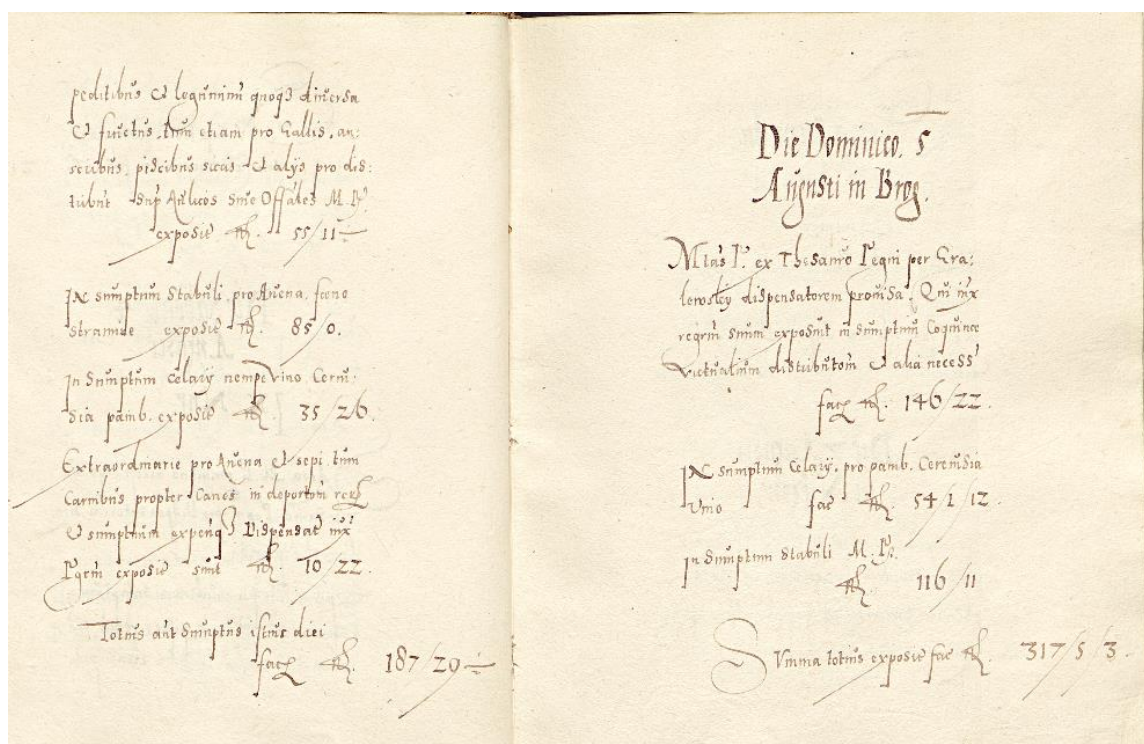 peditibus et leguminū quoqȝ diuersa
et fructus, tum etiam pro Gallis, an:
seribus, piscibus siccis et alijs pro dis:
tribut̄ sup Aulicos siue Offāles M. Rꝭ.
exposit̄ fl. 55/11 ÷
IN sumptum Stabuli, pro Auena, foeno
stramine exposit̄ fl. 85/0.
In Sumptum Celarij nempe Vino, Cerui:
sia pamb. exposit̄ fl. 35/26.
Extraordinarie pro Auena et sepi tum
Carnibus propter Canes in deportom̄
et sumptum Dispensat̄ iux̄
Rgrm̄ exposit̄ sunt fl. 10/22.
Totus aut Sumptus istius diei
facȝ fl. 187/29 ÷
Die Dominico. 5
Augusti in Brog.
Mtas R. ex Thesauro Regni per Gra:
lewsky dispensatorem prouisa. Qui iux
regrm̄ suum exposuit in Sumptum Coquinae
Victualium distributom̄ et alia necess̄
facȝ fl. 146/22.
IN sumptum Celarij, pro pamb. Ceruisia
Vino fac̄ fl. 54/1/12.
In Sumptum Stabuli M. Rꝭ.
fl. 116/11
Summa totius exposit̄ fac̄ fl. 317/5/3.